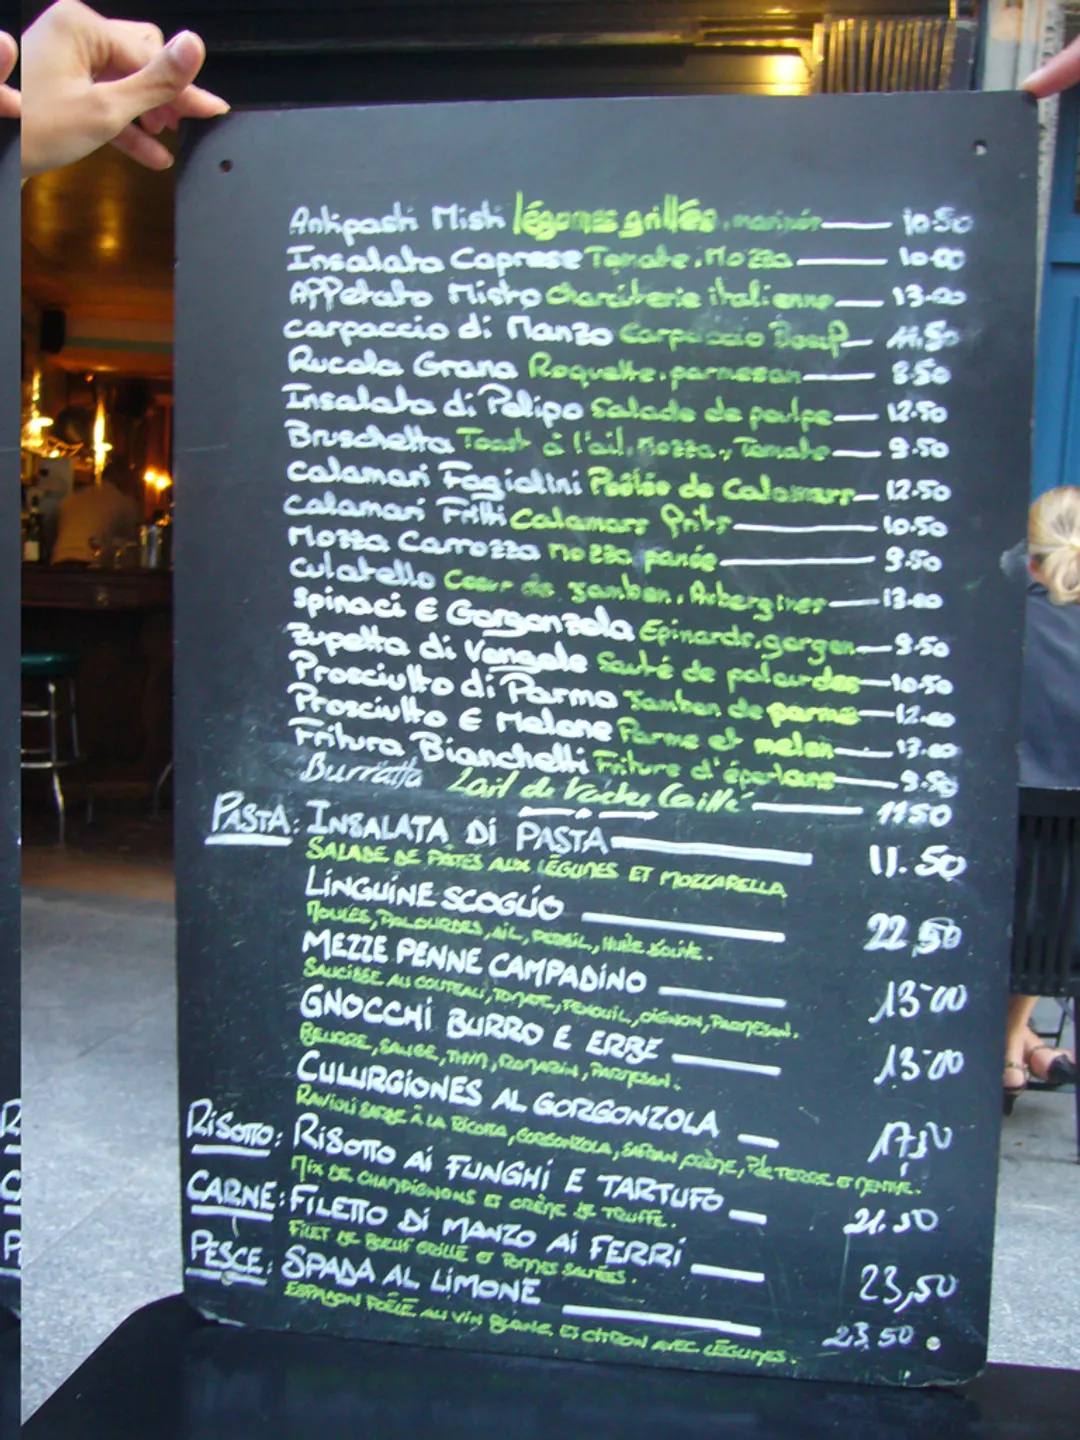 Antipasti Misti légumes grillés, marinés 10.50
Insalata Caprese Tomate, Mozza 10.00
APPetato Misto Charcuterie italienne 13.00
carpaccio di Manzo Carpaccio Boeuf 11.50
Rucola Grana Roquette, parmesan 8.50
Insalata di Polipo Salade de poulpe 12.50
Bruschetta Toast à l'ail, Mozza, Tomate 9.50
calamari Fagiolini Poêlée de Calamars 12.50
calamari Fritti Calamars frits 10.50
Mozza Carrozza Mozza panée 9.50
culatello Coeur de Jambon, Aubergines 13.00
spinaci E Gorgonzola Epinards, gorgon 9.50
Zupetta di Vongole Sauté de palourdes 10.50
Prosciutto di Parma Jambon de parme 12.00
Prosciutto E Melone Parme et melon 13.00
Fritura Bianchetti Friture d'éperlans 9.50
Burratta Lait de Vache Caillé 11.50
PASTA: INSALATA Di PASTA 11.50
SALADE DE PÂTES AUX LÉGUMES ET MOZZARELLA
LiNGUiNE SCOGLiO 22,50
MOULES, PALOURDES, AIL, PERSIL, HUILE D'OLIVE.
MEZZE PENNE CAMPADiNO 13.00
SAUCISSE AU COUTEAU, TOMATE, FENOUIL, OIGNON, PARMESAN.
GNOCCHi BURRO E ERBE 13.00
BEURRE, SAUGE, THYM, ROMARIN, PARMESAN.
CULURGiONES AL GORGONZOLA 17,50
RAVIOLI SARDE À LA RICOTTA, GORGONZOLA, SAFRAN, CRÈME, P. DE TERRE ET MENTHE.
RiSOTTO: RiSOTTO Ai FUNGHi E TARTUFO 21.50
MIX DE CHAMPIGNONS ET CRÈME DE TRUFFE.
CARNE: FiLETTO Di MANZO Ai FERRi 23,50
FILET DE BOEUF GRILLÉ ET POMMES SAUTÉES.
PESCE: SPADA AL LiMONE 23.50
ESPADON POÊLÉ AU VIN BLANC ET CITRON AVEC LÉGUMES.